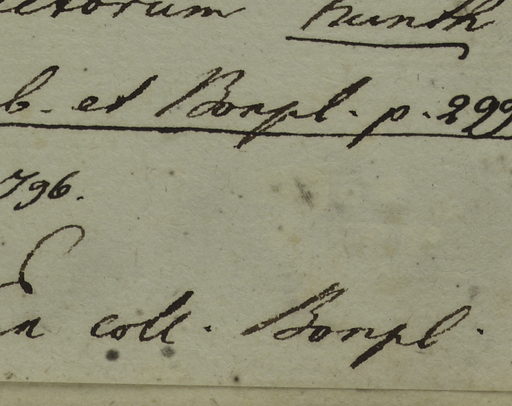 etorum Kunth
b. et Bonpl. p. 299
796.
En coll. Bonpl.